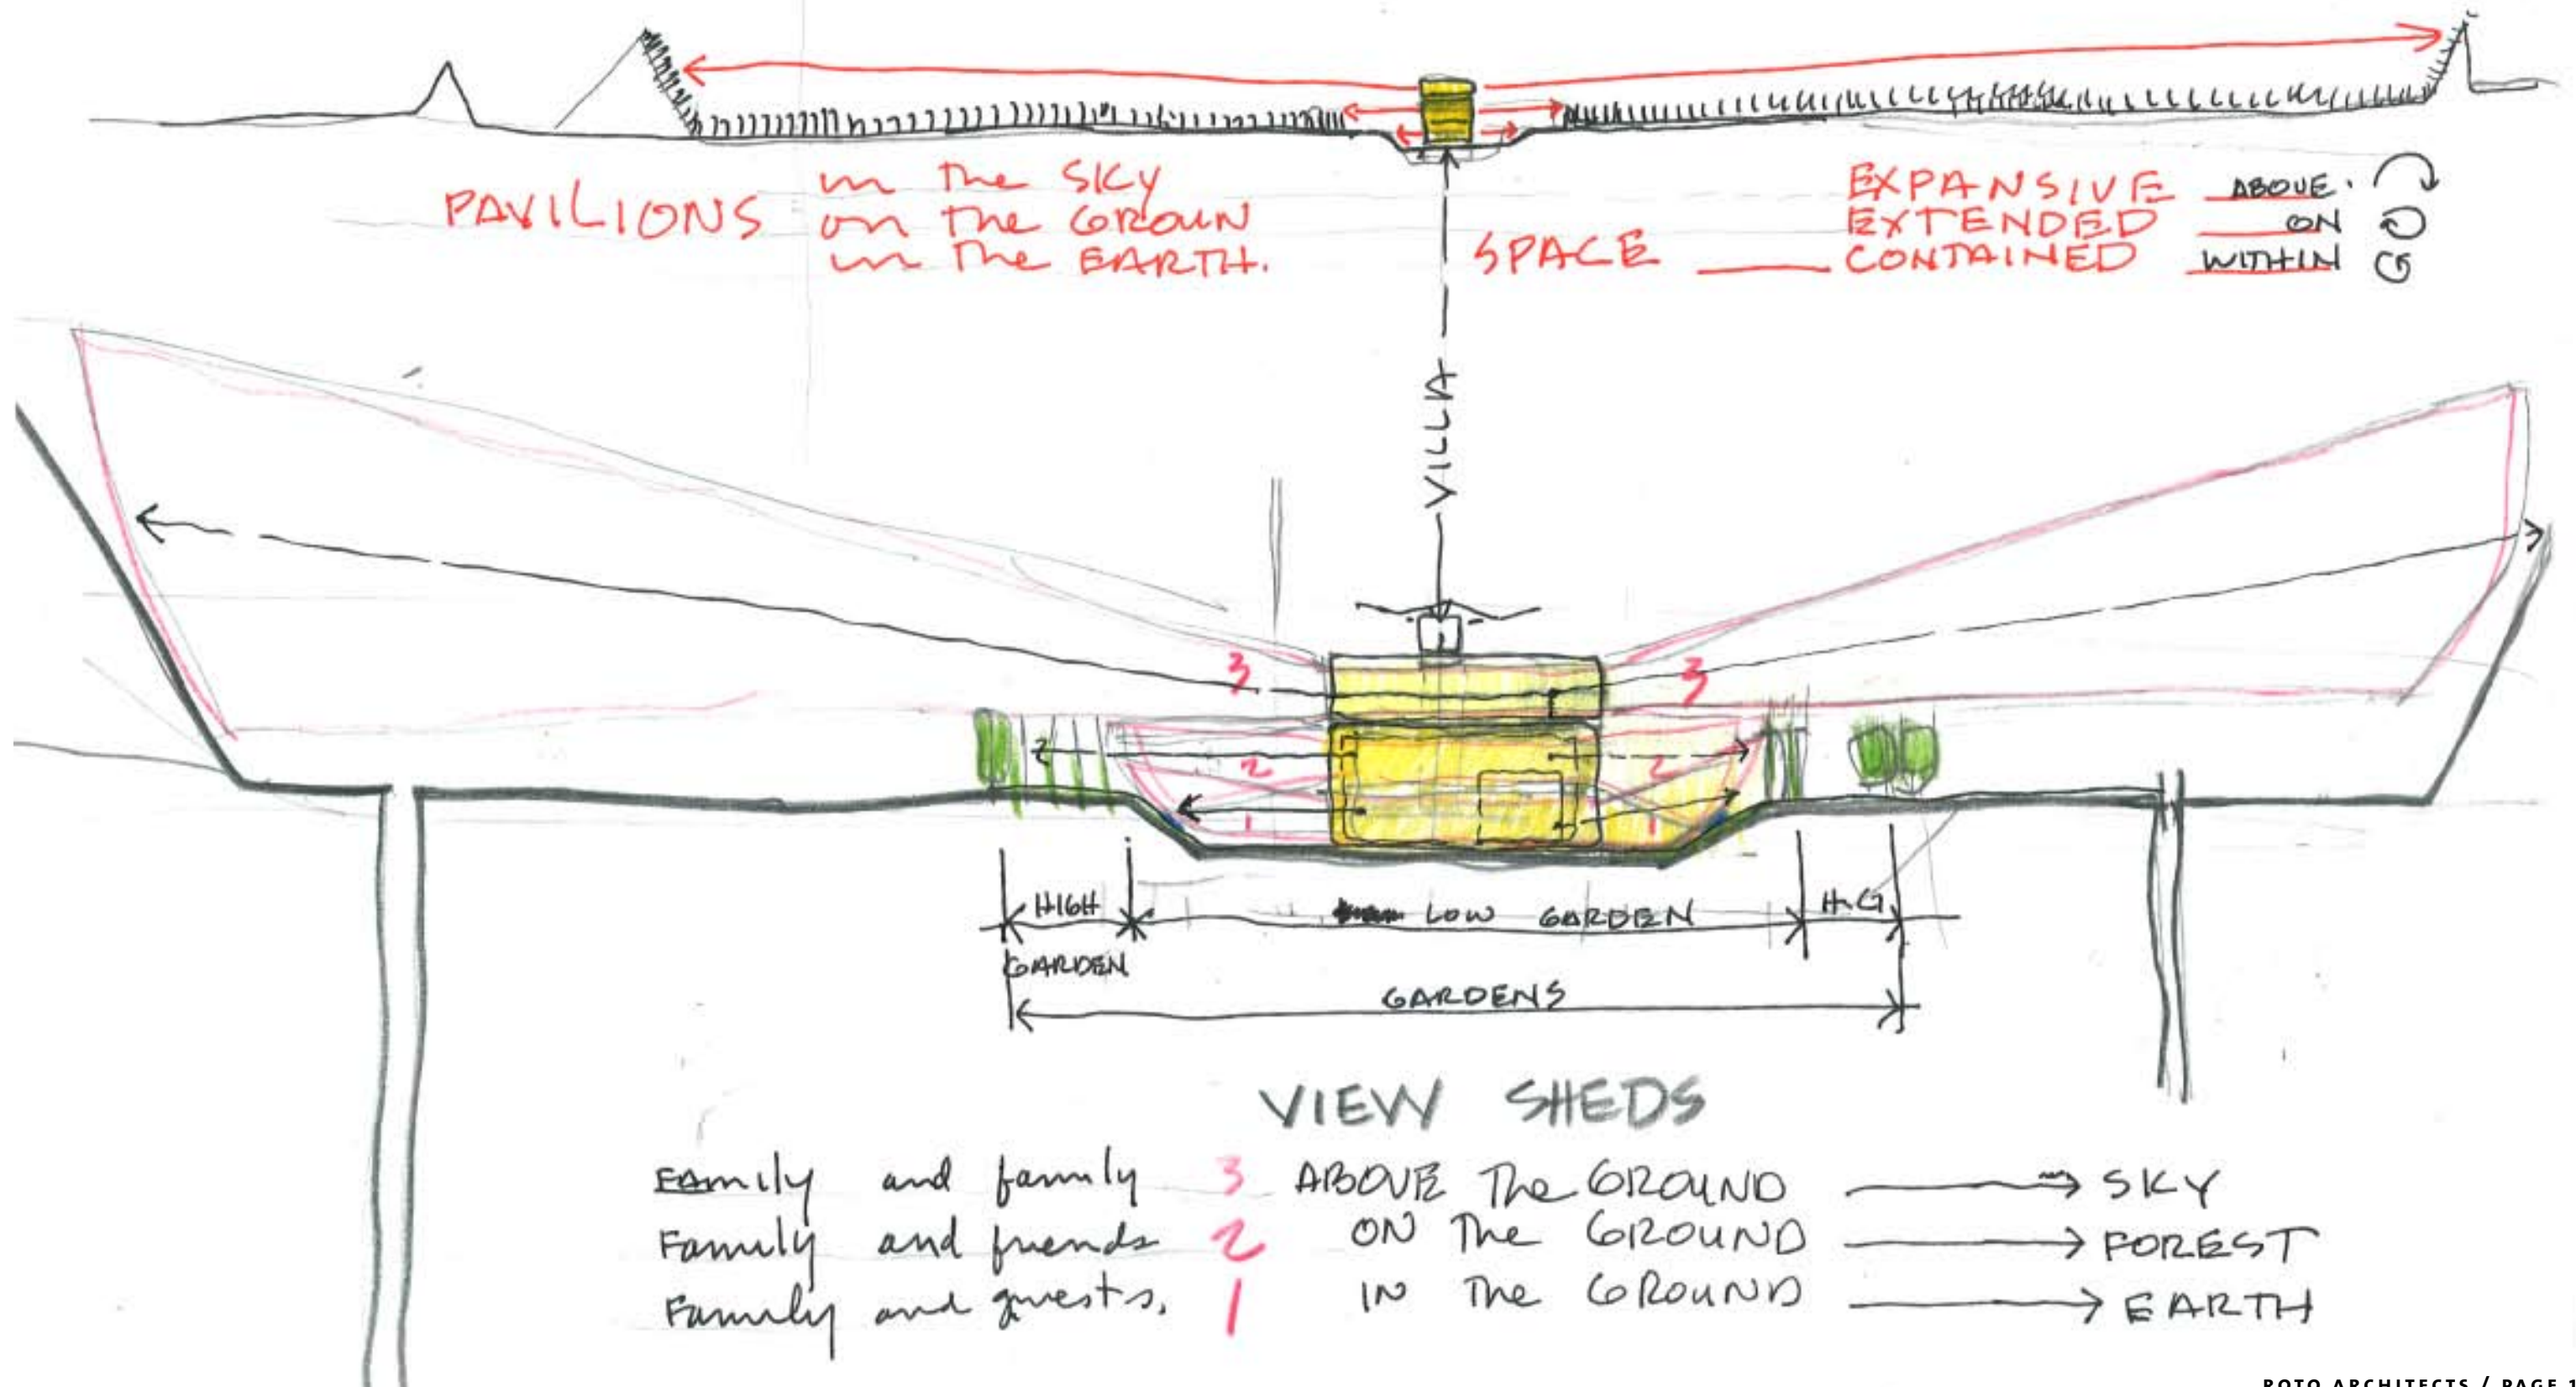 PAVILIONS
in the SKY
on the GROUN
in the EARTH.
SPACE
EXPANSIVE ABOVE.
EXTENDED ON
CONTAINED WITHIN
VILLA
3 3
2 2 2
1 1
HIGH LOW GARDEN H.G.
GARDEN
GARDENS
VIEW SHEDS
FAmily and family 3 ABOVE The GROUND SKY
Family and friends 2 ON The GROUND FOREST
Family and guests. 1 IN The GROUND EARTH
ROTO ARCHITECTS / PAGE 1